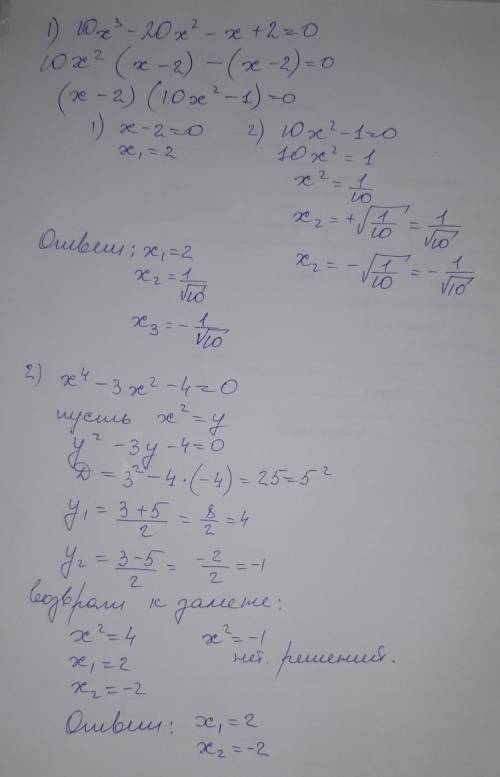 1) 10x³ - 20x² - x + 2 = 0
10x² (x - 2) - (x - 2) = 0
(x - 2) (10x² - 1) = 0
1) x - 2 = 0
x₁ = 2
2) 10x² - 1 = 0
10x² = 1
x² = 1/10
x₂ = +√(1/10) = 1/√10
x₂ = -√(1/10) = -1/√10
Ответ: x₁ = 2
x₂ = 1/√10
x₃ = -1/√10
2) x⁴ - 3x² - 4 = 0
пусть x² = y
y² - 3y - 4 = 0
D = 3² - 4·(-4) = 25 = 5²
y₁ = (3+5)/2 = 8/2 = 4
y₂ = (3-5)/2 = -2/2 = -1
возврат к замене:
x² = 4
x₁ = 2
x₂ = -2
x² = -1
нет. решений.
Ответ: x₁ = 2
x₂ = -2